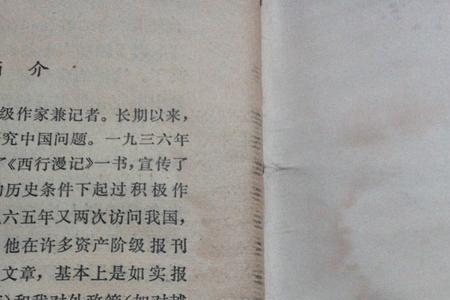 简介
级作家兼记者。长期以来，
究中国问题。一九三六年
了《西行漫记》一书，宣传了
的历史条件下起过积极作
六五年又两次访问我国，
他在许多资产阶级报刊
文章，基本上是如实报
和我对外政策（如对越